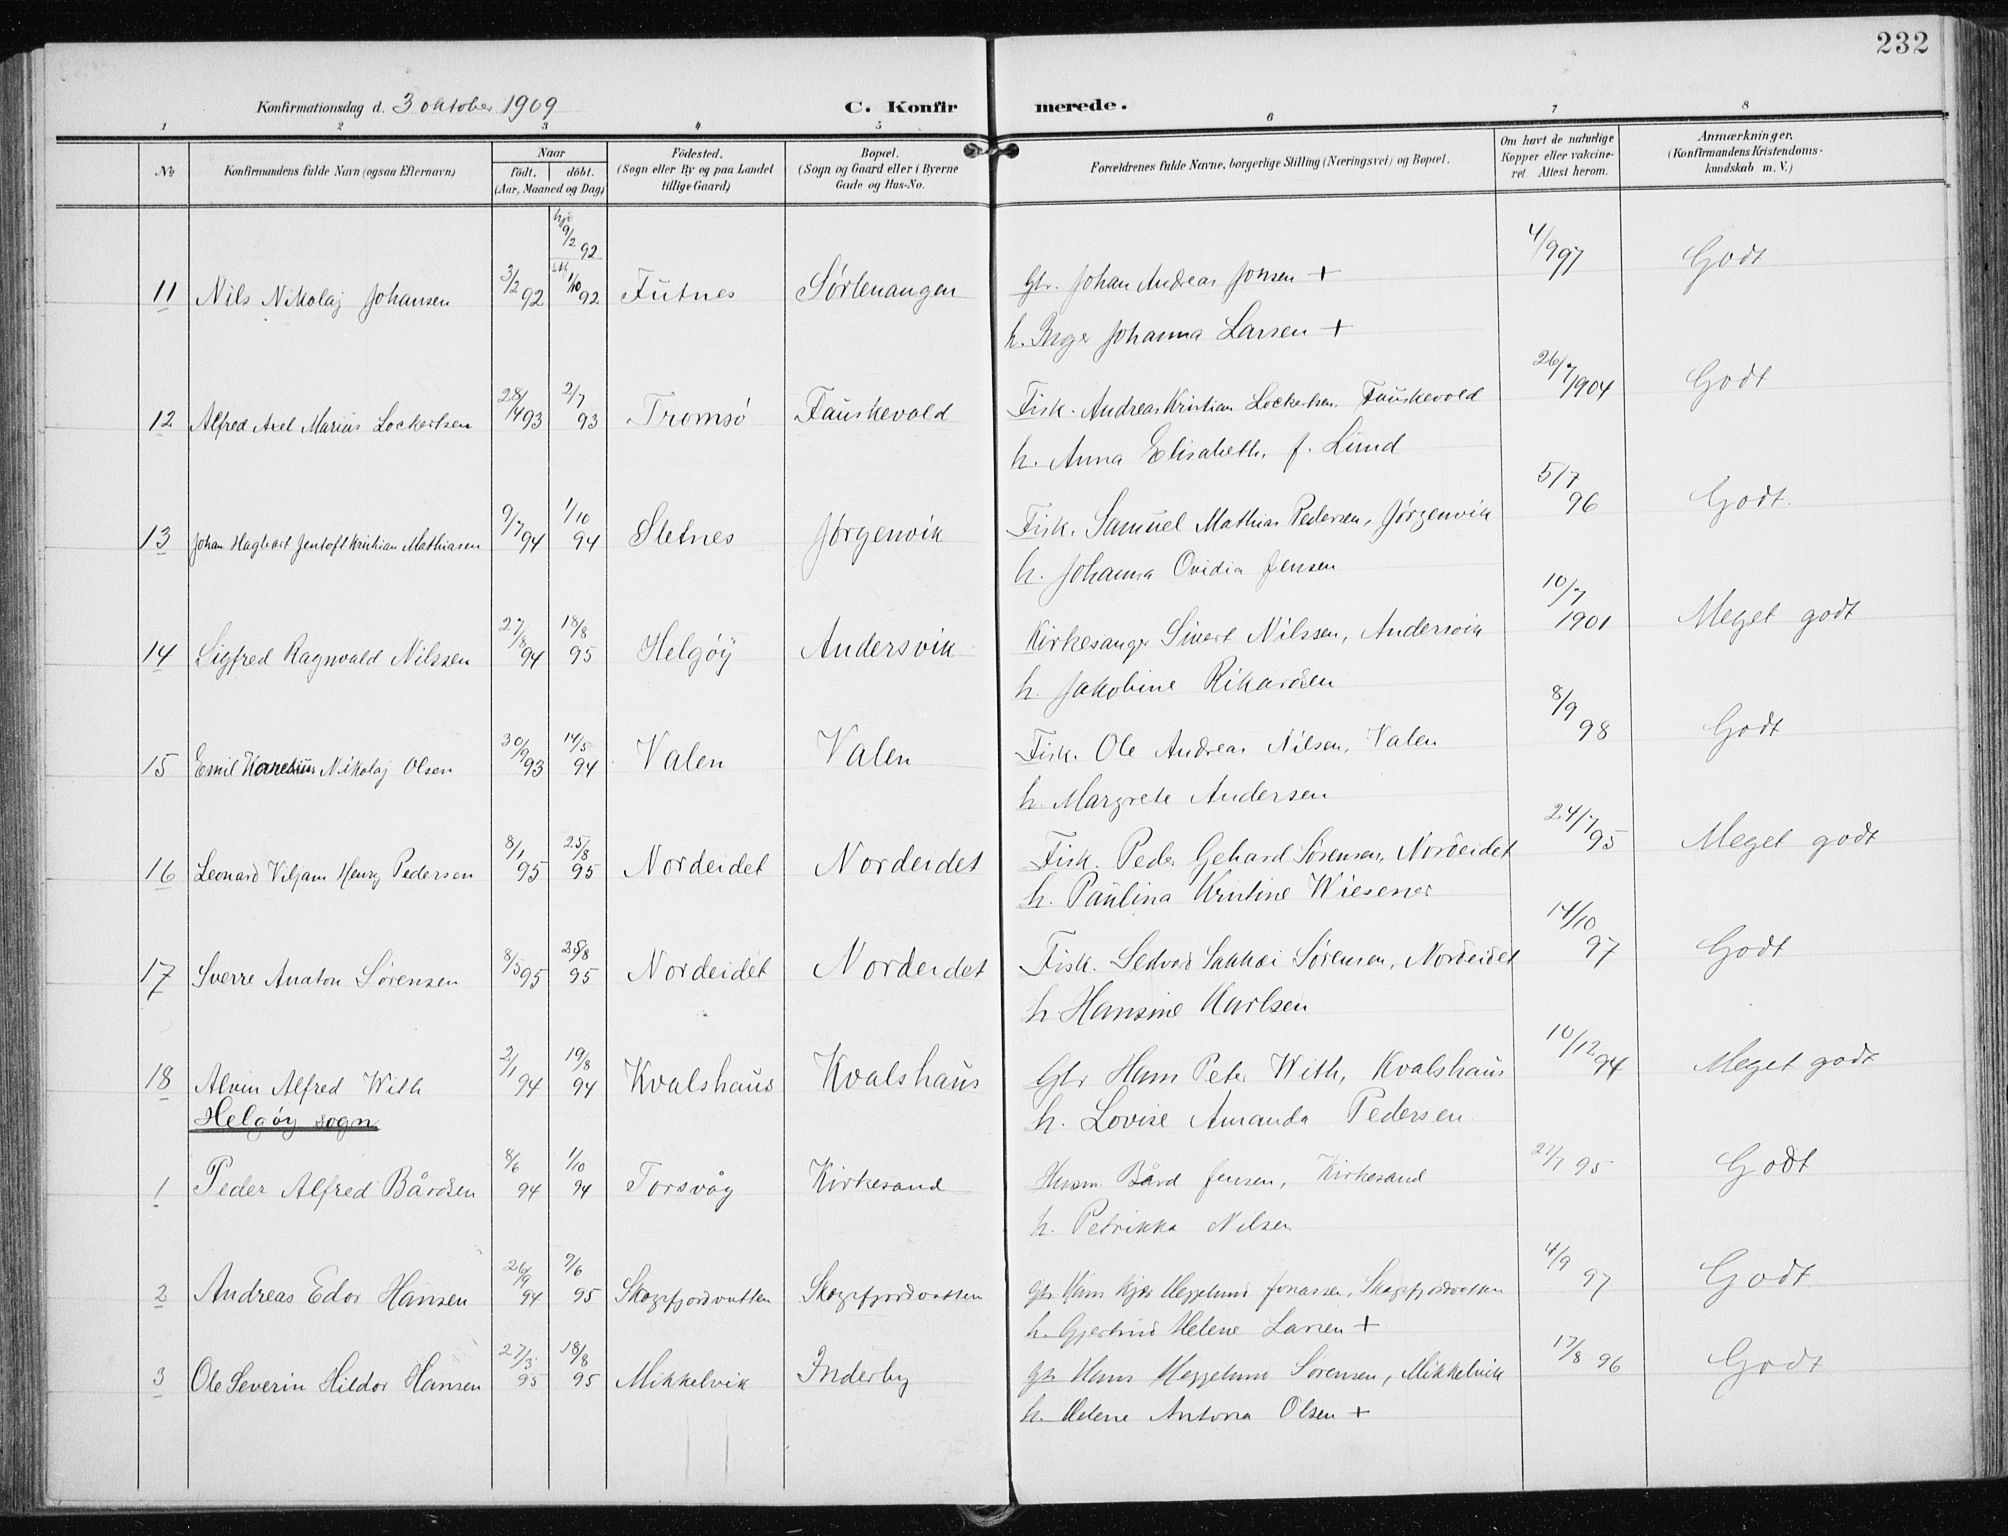 232
Konfirmationsdag d. 3 oktober 1909 C. Konfirmerede.
1 2 3 4 5 6 7 8
No
Konfirmandens fulde Navn (ogsaa Efternavn)
Naar
födt. döbt.
(Aar, Maaned og Dag)
Födested.
(Sogn eller By og paa Landet
tillige Gaard)
Bopæl.
(Sogn og Gaard eller i Byerne
Gade og Hus-No.
Forældrenes fulde Navne, borgerlige Stilling (Næringsvei) og Bopæl.
Om havt de naturlige
Kopper eller vakcine-
ret Attest herom.
Anmærkninger.
(Konfirmandens Kristendoms-
kundskab m. V.)
hjd 9/2 92
11 Nils Nikolaj Johansen 3/2 92 1/10 92 Futnes Sørlenangen Gbr. Johan Andreas Jonsen + 4/9 97 Godt
h. Inger Johanna Larsen +
12 Alfred Axel Marius Lockertsen 28/4 93 2/7 93 Tromsö Fauskevold Fisk. Andreas Kristian Lockertsen. Fauskevold 26/7 1904 Godt
h. Anna Elisabeth f. Lund
13 Johan Hagbart Jentoft Kristian Mathiasen 9/7 94 1/10 94 Sletnes Jørgenvik Fisk. Samuel Mathias Pedersen, Jørgenvik 5/7 96 Godt.
h. Johanna Ovidia Jensen
14 Sigfred Ragnvald Nilssen 27/8 94 18/8 95 Helgöy Andersvik Kirkesanger Sivert Nilssen, Andersvik 10/7 1901 Meget godt
h. Jakobine Rikardsen
15 Emil Nikolaj Olsen 30/9 93 14/5 94 Valen Valen Fisk. Ole Andreas Nilsen, Valen 8/9 98 Godt
h. Margrete Andersen
16 Leonard Viljam Henry Pedersen 8/1 95 25/8 95 Nordeidet Nordeidet Fisk. Peder Gehard Sörensen, Nordeidet 24/7 95 Meget godt
h. Paulina Kristine Wiesener
17 Sverre Anaton Sörensen 8/5 95 25/8 95 Nordeidet Nordeidet Fisk. Sedvard Sörensen, Nordeidet 14/10 97 Godt
h Hansine Karlsen
18 Alvin Alfred With 2/1 94 19/8 94 Kvalshaus Kvalshaus Gbr Hans Peter With, Kvalshaus 10/12 94 Meget godt
Helgöy sogn. h. Lovise Amanda Pedersen
1 Peder Alfred Bårdsen 8/6 94 1/10 94 Torsvåg Kirkesand Husm Bård Jensen, Kirkesand 27/7 95 Godt
h. Petrikka Nilsen
2 Andreas Edor Hansen 26/9 94 9/6 95 Skogsfjordvatten Skogsfjordvatten gbr Hans Kjær Heggelund Jonassen, Skogsfjordvatten 4/9 97 Godt
h. Gjertrud Helene Larsen +
3 Ole Severin Hildor Hansen 27/3 95 18/8 95 Mikkelvik Inderby gbr Hans Heggelund Sörensen, Mikkelvik 17/8 96 Godt
h. Helene Antona Olsen +